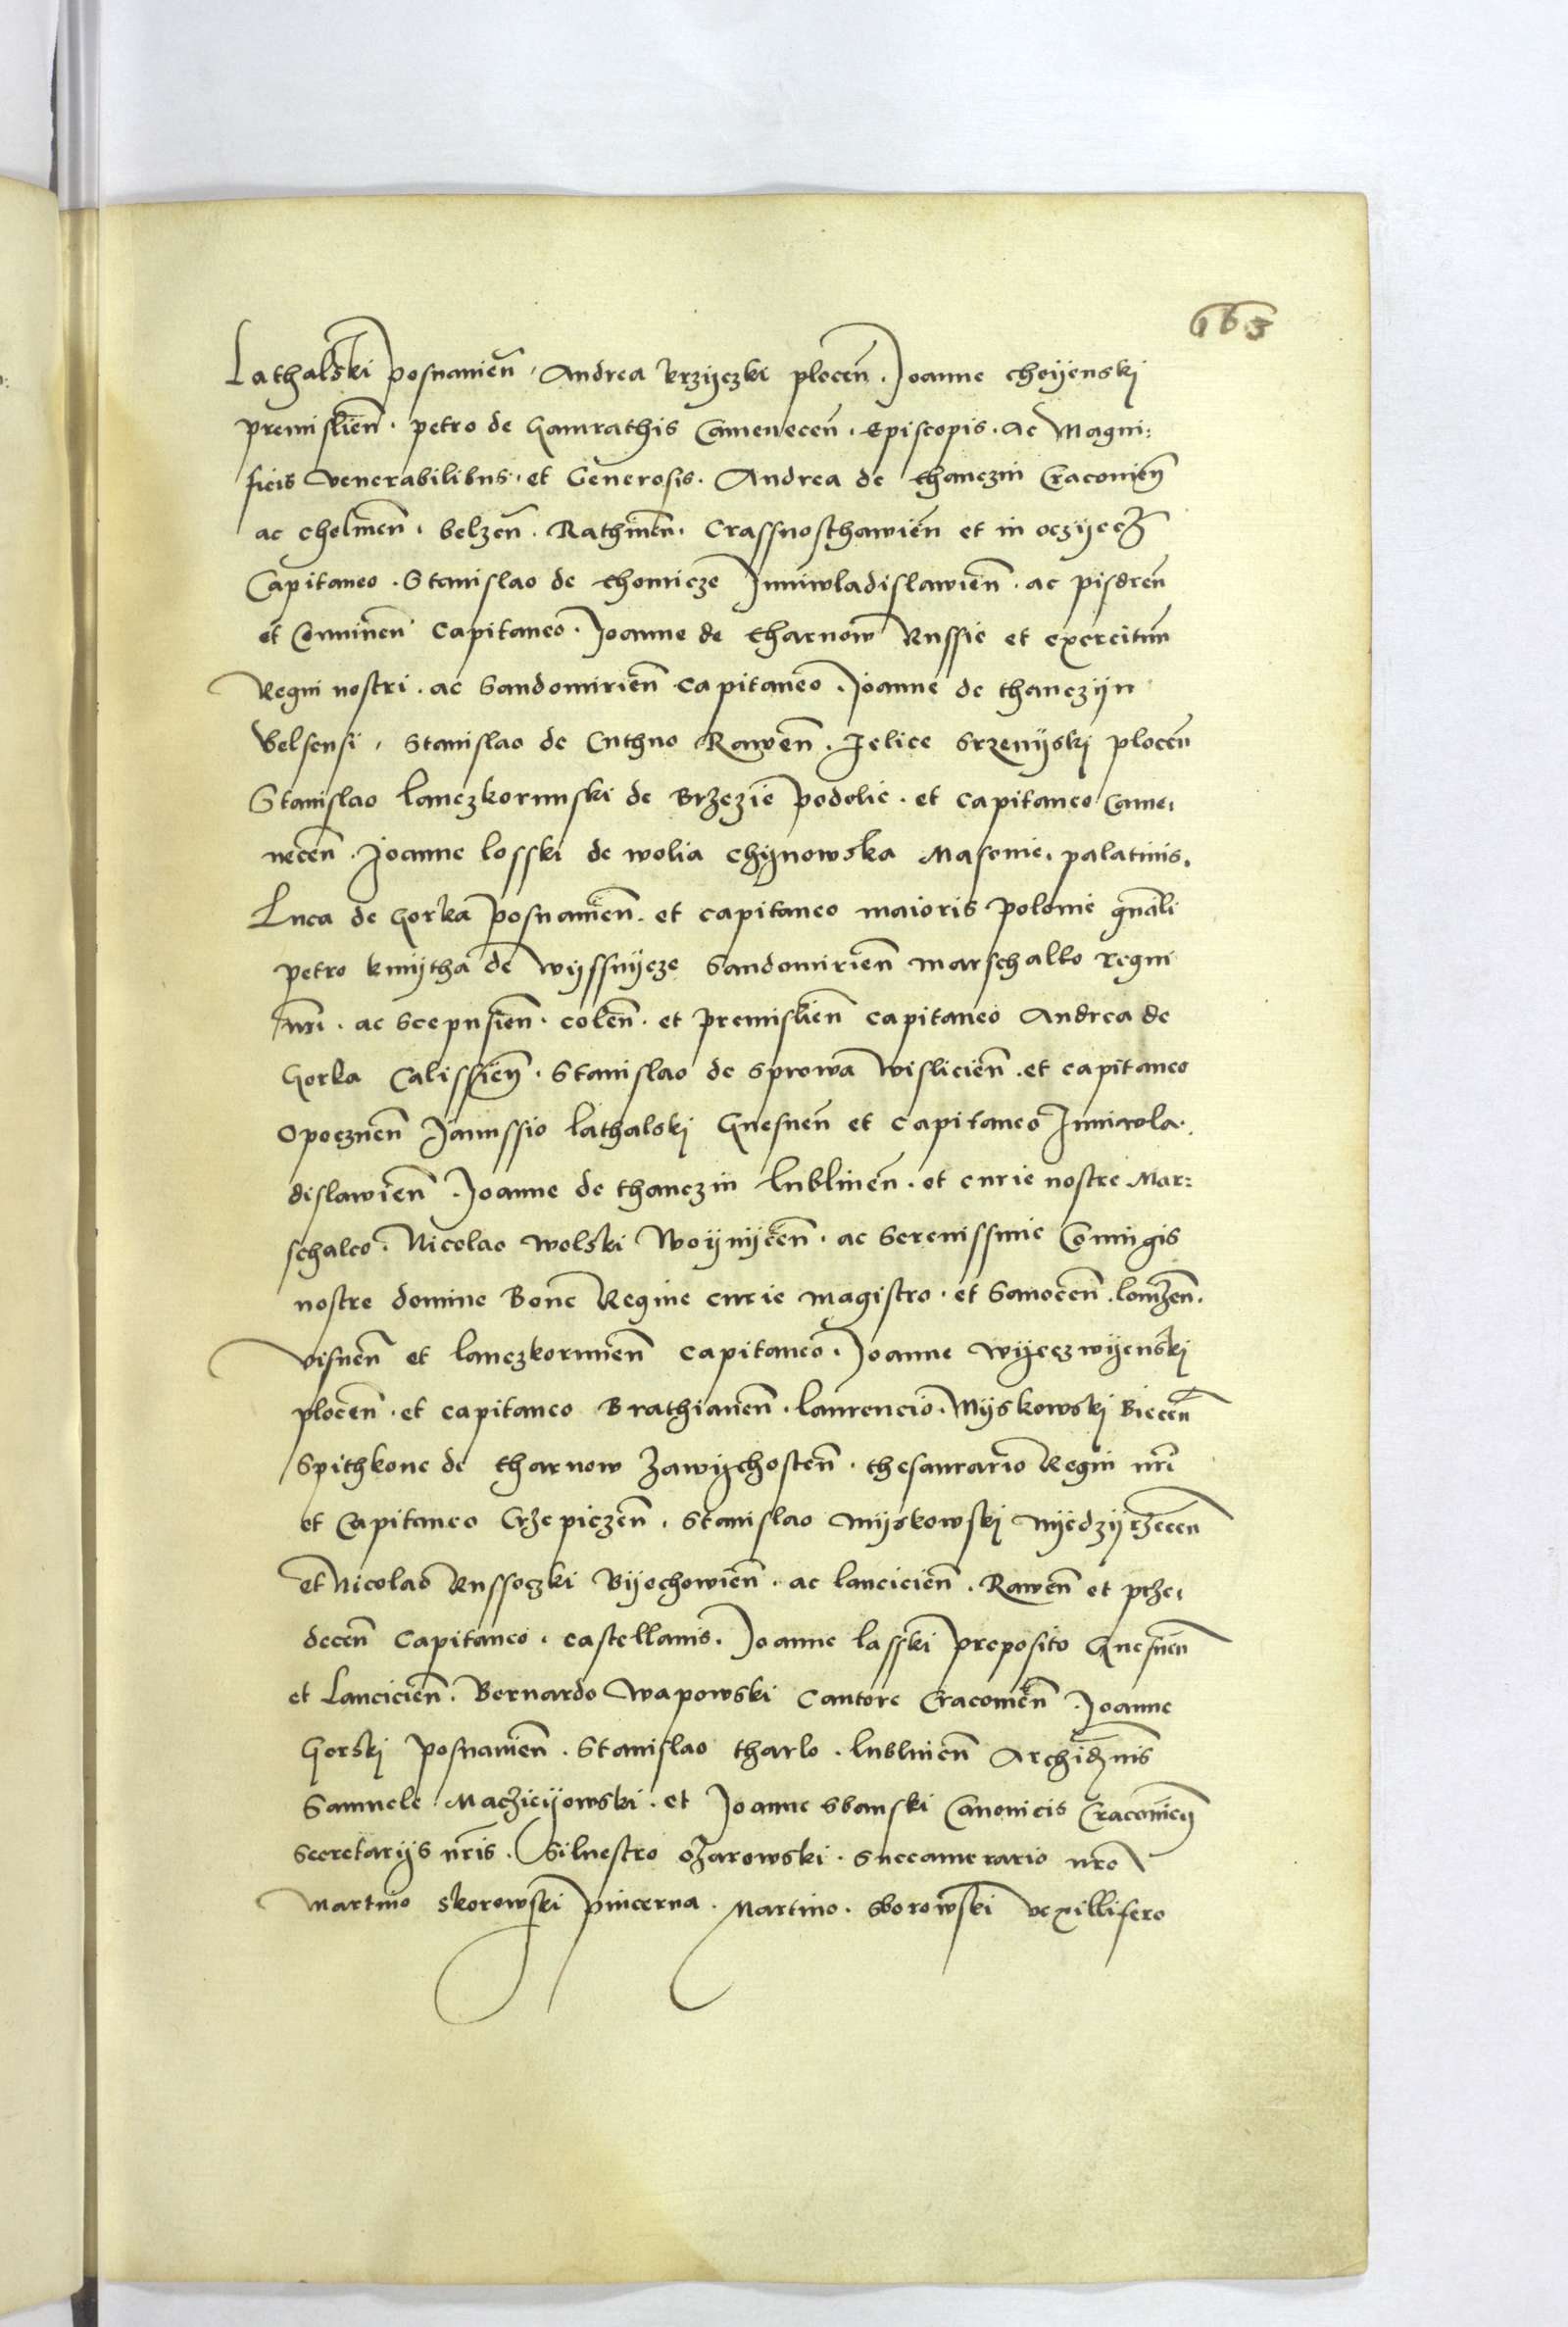 163
Lathalski posnanien̄. Andrea krzyczki plocen̄. Joanne choyenskj
premislien̄. petro de Gamrathis Camenecen̄. Episcopis. ac Magni:
ficis venerabilibus. et Generosis. Andrea de thanczin Cracouien̄
ac chelmen̄. belzen̄. Rathnen̄. Crassnosthawien̄ et in oczyecz
Capitaneo. Stanislao de chomicze Juniwladislawien̄. ac pisdren̄
et Conninen̄ capitaneo. Joanne de tharnow Russie et exercituu̅
Regni nostri. ac Sandomirien̄ capitaneo. Joanne de thanczyn
Belsensi, Stanislao de Cuthno Rawen̄. Felice Srzenyskj plocen̄
Stanislao lanczkorunski de Brzezie podolie. et capitaneo Came,
necen̄. Joanne losski de wolia chynowska Masouie. palatinis.
Luca de Gorka posnanien̄. et capitaneo maioris polonie gn̄ali
petro kmytha de wyssnycze Sandomirien̄ marschalko regni
nr̄i. ac Scepusien̄. colen̄. et premislien̄ capitaneo Andrea de
Gorka Calissien̄. Stanislao de Sprowa Wislicien̄. et capitaneo
opocznen̄ Janussio lathalskj Gnesnen̄ et capitaneo Juniwla.
dislawien̄. Joanne de thanczin lublinen̄. et curie nostre Mar:
schalco. Nicolao wolski Woynycen̄. ac Serenissime Coniugis
nostre domine Bone Regine curie magistro. et Sanocen̄. lomzen̄.
visnen̄ et lanczkorunen̄ capitaneo. Joanne wyeczwyenskj
plocen̄. et capitaneo Brathianen̄. laurencio. Myskowskj Biecen̄
Spithkone de tharnow Zawychosten̄. thesaurario Regni nr̄i
et Capitaneo Crzepiczen̄. Stanislao myskowskj myedzyrzecen̄
et Nicolao Russoczki Byechowien̄. ac lancicien̄. Rawen̄ et przc,
decen̄ capitaneo. castellanis. Joanne lasski preposito Gnesnen̄
et Lancicien̄. Bernardo Wapowski cantore Cracouien̄. Joanne
Gorskj posnanien̄. Stanislao tharlo. lublinen̄ Archidn̄is
Samuele Maczieyowski. et Joanne Sbanski Canonicis Cracouien̄
secretarijs nr̄is. Siluestro ozarowski. succamerario nr̄o
Martino Skorowski pincerna. Martino. sborowski vexillifero